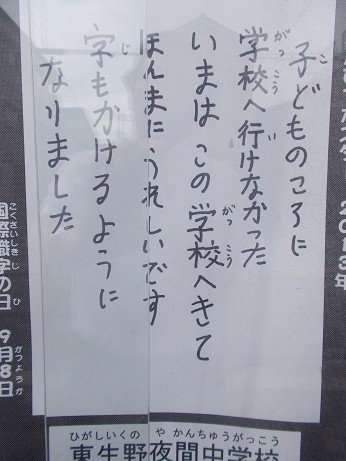 子どものころに
学校へ行けなかった
いまはこの学校へきて
ほんまにうれしいです
字もかけるように
なりました
国際識字の日 9月8日
東生野夜間中学校